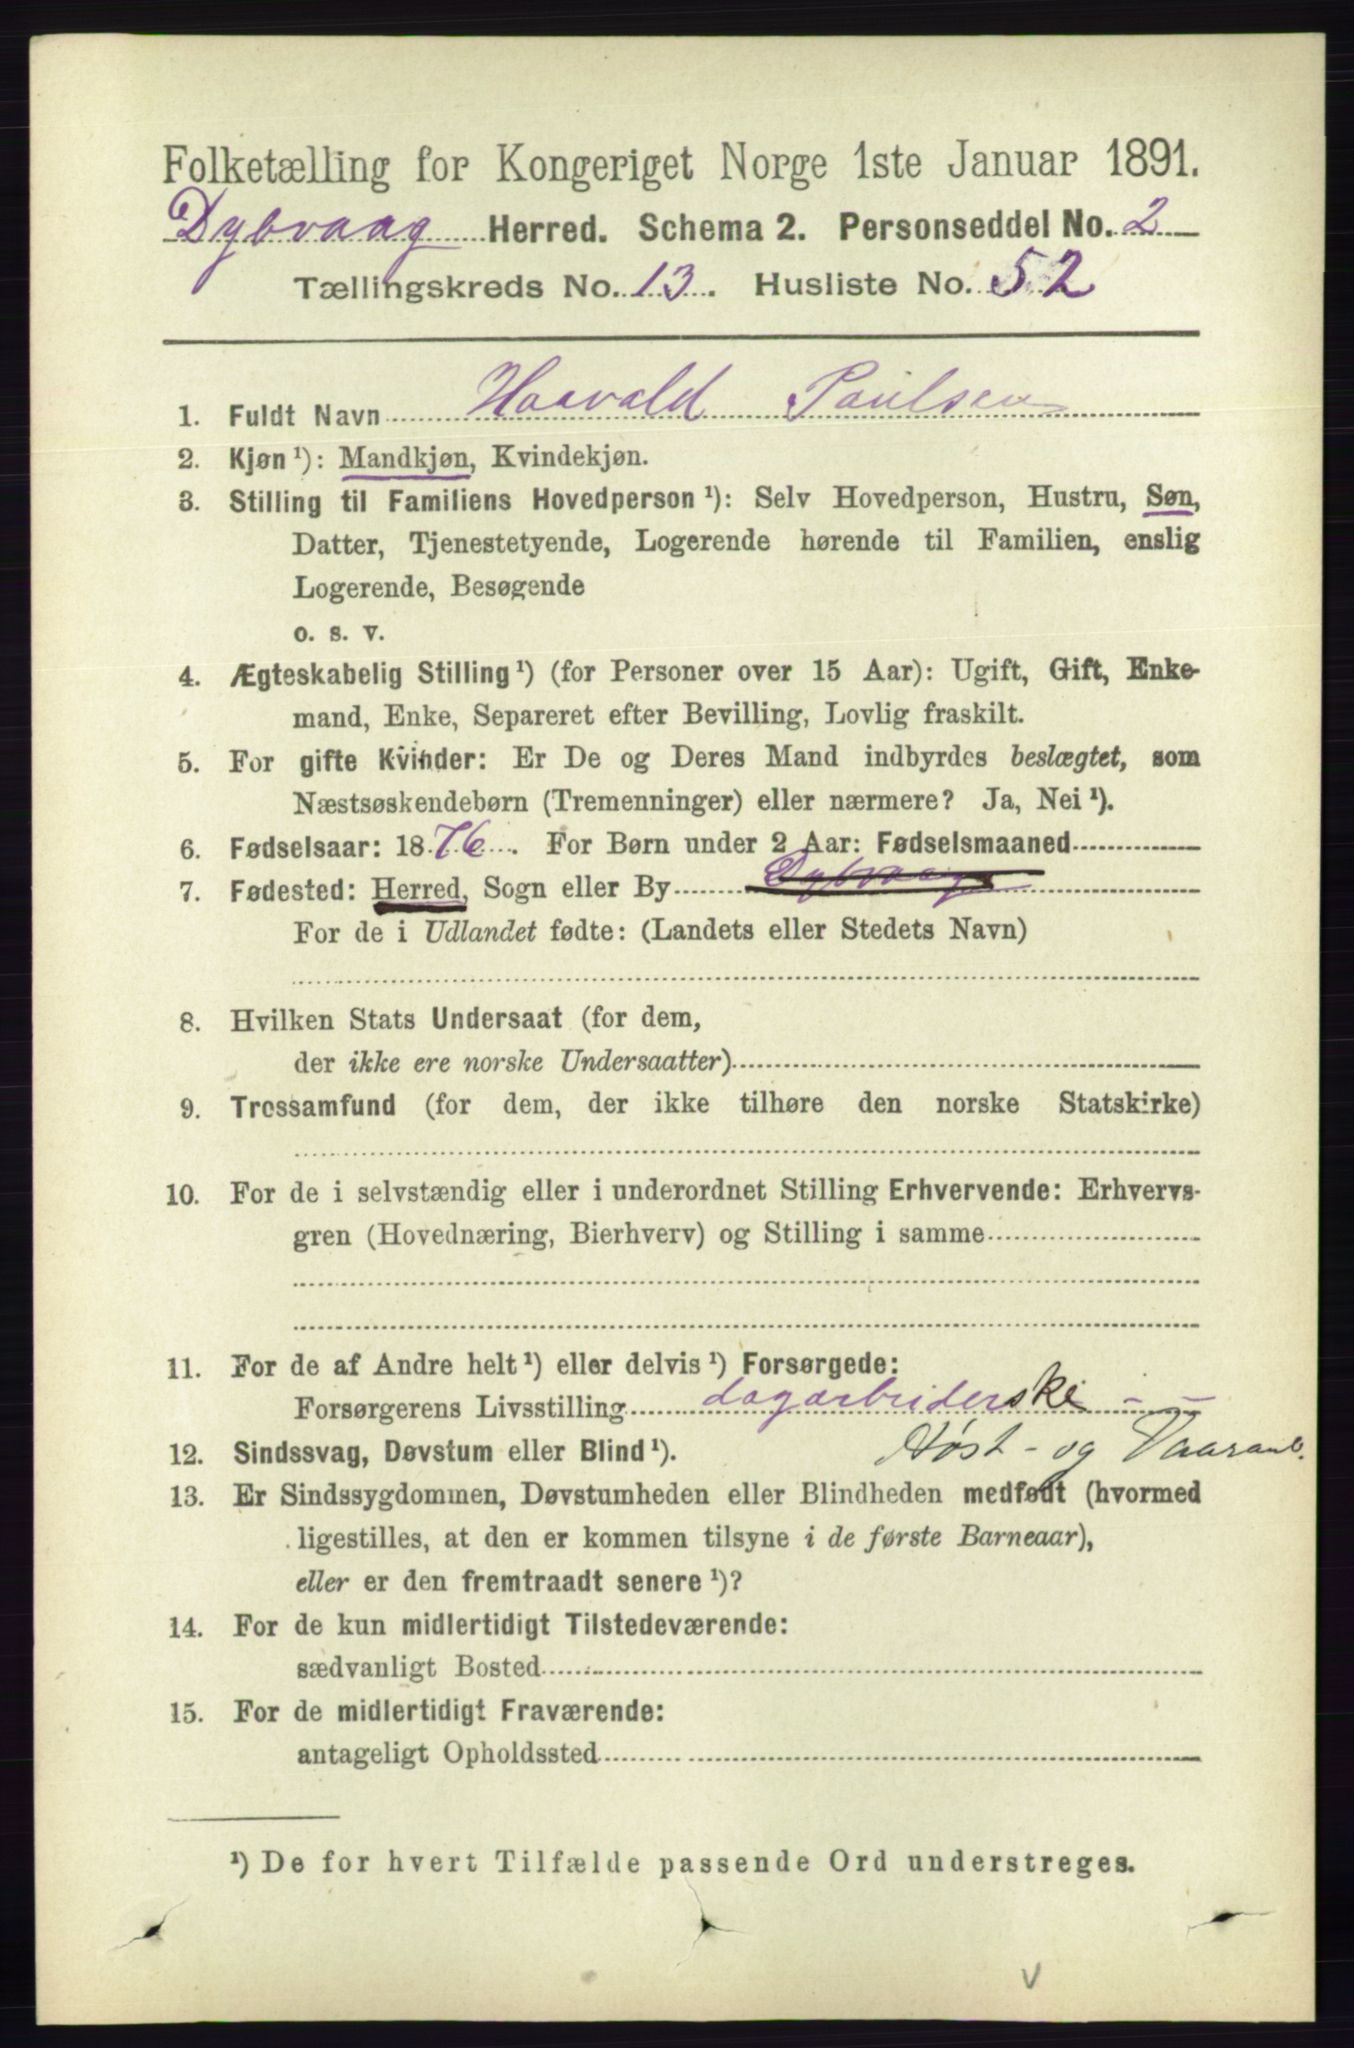 Folketælling for Kongeriget Norge 1ste Januar 1891.
Dybvaag Herred. Schema 2. Personseddel No. 2
Tællingskreds No. 13. Husliste No. 52
1. Fuldt Navn Haavald Paulsen
2. Kjøn ¹): Mandkjøn, Kvindekjøn.
3. Stilling til Familiens Hovedperson ¹): Selv Hovedperson, Hustru, Søn,
Datter, Tjenestetyende, Logerende hørende til Familien, enslig
Logerende, Besøgende
o. s. v.
4. Ægteskabelig Stilling ¹) (for Personer over 15 Aar): Ugift, Gift, Enke-
mand, Enke, Separeret efter Bevilling, Lovlig fraskilt.
5. For gifte Kvinder: Er De og Deres Mand indbyrdes beslægtet, som
Næstsøskendebørn (Tremenninger) eller nærmere? Ja, Nei ¹).
6. Fødselsaar: 1876. For Børn under 2 Aar: Fødselsmaaned
7. Fødested: Herred, Sogn eller By Dybvaag
For de i Udlandet fødte: (Landets eller Stedets Navn)
8. Hvilken Stats Undersaat (for dem,
der ikke ere norske Undersaatter)
9. Trossamfund (for dem, der ikke tilhøre den norske Statskirke)
10. For de i selvstændig eller i underordnet Stilling Erhvervende: Erhvervs-
gren (Hovednæring, Bierhverv) og Stilling i samme
11. For de af Andre helt ¹) eller delvis ¹) Forsørgede:
Forsørgerens Livsstilling dagarbeiderske - -
12. Sindssvag, Døvstum eller Blind ¹). Høst- og Vaaranb.
13. Er Sindssygdommen, Døvstumheden eller Blindheden medfødt (hvormed
ligestilles, at den er kommen tilsyne i de første Barneaar),
eller er den fremtraadt senere ¹)?
14. For de kun midlertidigt Tilstedeværende:
sædvanligt Bosted
15. For de midlertidigt Fraværende:
antageligt Opholdssted
¹) De for hvert Tilfælde passende Ord understreges.
V